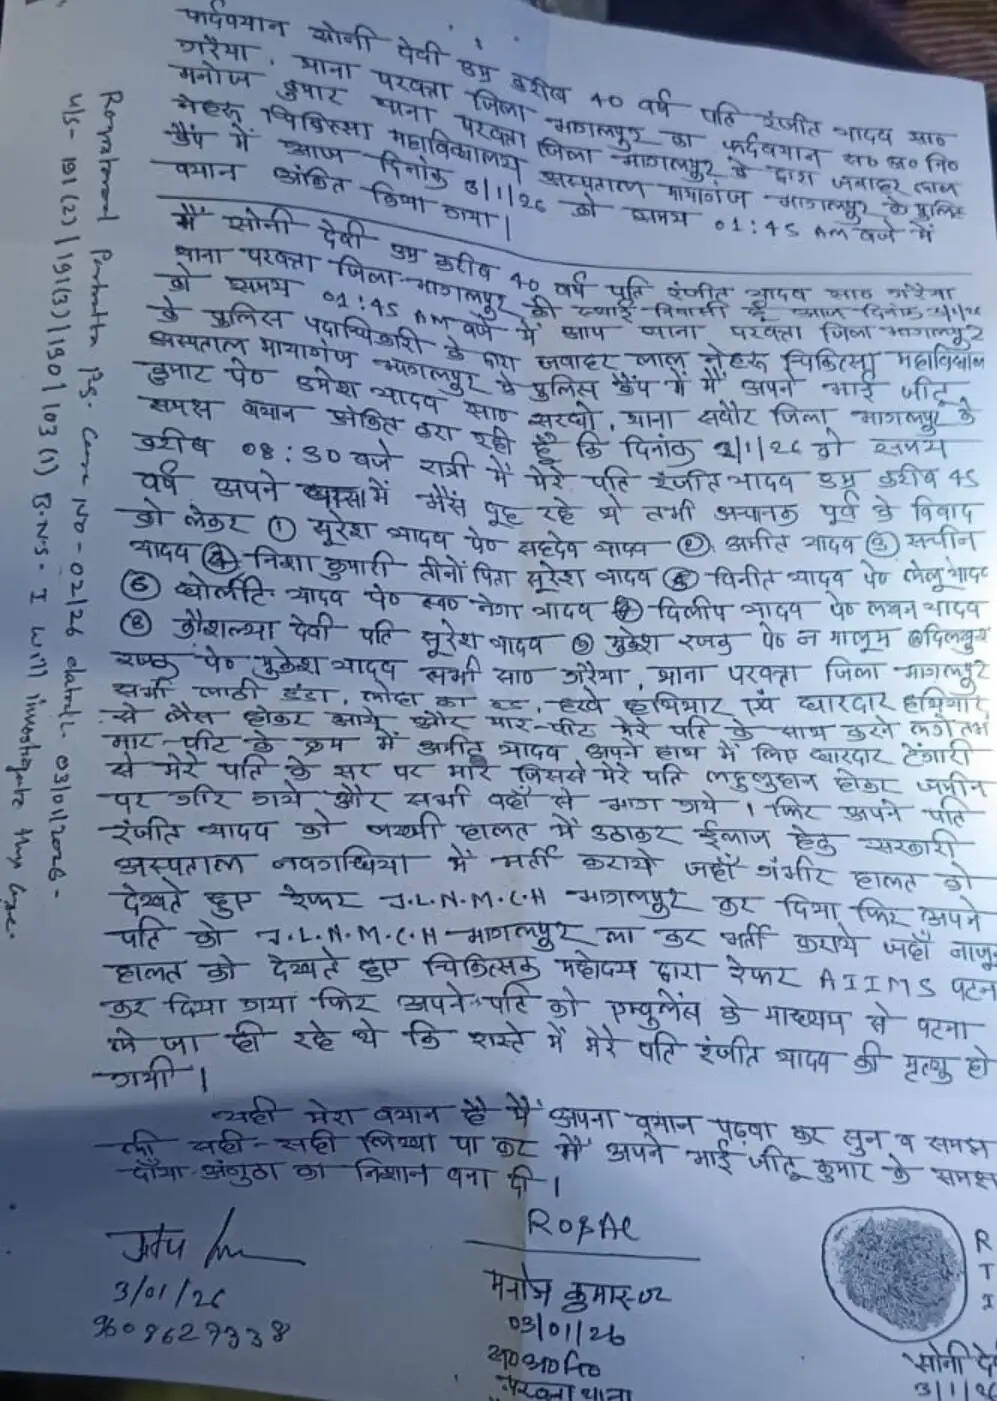 फर्दबयान सोनी देवी उम्र करीब 40 वर्ष पति रंजीत यादव सा०
गरैया, थाना परवत्ता जिला भागलपुर का फर्दबयान स० अ० नि०
मनोज कुमार थाना परवत्ता जिला भागलपुर के द्वारा जवाहर लाल
नेहरू चिकित्सा महाविद्यालय अस्पताल मायागंज भागलपुर के पुलिस
कैंप में आज दिनांक 3/1/26 को समय 01:45 AM बजे में
बयान अंकित किया गया।
मैं सोनी देवी उम्र करीब 40 वर्ष पति रंजीत यादव सा० गरैया
थाना परवत्ता जिला-भागलपुर की स्थाई निवासी हूँ आज दिनांक 3/1/26
को समय 01:45 AM बजे में आप थाना परवत्ता जिला भागलपुर
के पुलिस पदाधिकारी के द्वारा जवाहर लाल नेहरू चिकित्सा महाविद्यालय
अस्पताल मायागंज भागलपुर के पुलिस कैंप में मैं अपने भाई जीटू
कुमार पे० उमेश यादव सा० सरधो, थाना सबौर जिला भागलपुर के
समक्ष बयान अंकित करा रही हूँ कि दिनांक 2/1/26 को समय
करीब 08:30 बजे रात्री में मेरे पति रंजीत यादव उम्र करीब 45
वर्ष अपने बासा में भैंस दूह रहे थे तभी अचानक पूर्व के विवाद
को लेकर ① सुरेश यादव पे० सहदेव यादव ② अमीत यादव ③ सचीन
यादव ④ निशा कुमारी तीनों पिता सुरेश यादव ⑤ विनीत यादव पे० लेलू यादव
⑥ यादव पे० स्व० नेगा यादव ⑦ दिलीप यादव पे० लखन यादव
⑧ कौशल्या देवी पति सुरेश यादव ⑨ मुकेश रजक पे० न मालूम ⑩
रजक पे० मुकेश यादव सभी सा० गरैया, थाना परवत्ता जिला भागलपुर
सभी लाठी डंडा, लोहा का रड, हरवे हथियार एवं धारदार हथियार
से लैस होकर आये और मार-पीट मेरे पति के साथ करने लगे तभी
मार-पीट के क्रम में अमीत यादव अपने हाथ में लिए धारदार टेंगारी
से मेरे पति के सर पर मारे जिससे मेरे पति लहुलुहान होकर जमीन
पर गीर गये और सभी वहाँ से भाग गये। फिर अपने पति
रंजीत यादव को जख्मी हालत में उठाकर ईलाज हेतु सरकारी
अस्पताल नवगछिया में भर्ती कराये जहाँ गंभीर हालत को
देखते हुए रेफर J.L.N.M.C.H भागलपुर कर दिया फिर अपने
पति को J.L.N.M.C.H-भागलपुर ला कर भर्ती कराये जहाँ नाजुक
हालत को देखते हुए चिकित्सक महोदय द्वारा रेफर AIIMS पटना
कर दिया गया फिर अपने पति को एम्बुलेंस के माध्यम से पटना
ले जा ही रहे थे कि रास्ते में मेरे पति रंजीत यादव की मृत्यु हो
गयी।
यही मेरा बयान है मैं अपना बयान पढ़वा कर सुन व समझ
ली सही-सही लिखा पा कर मैं अपने भाई जीटू कुमार के समक्ष
बाँया अंगुठा का निशान बना दी।
3/01/26
9608627338
RO&AC
मनोज कुमार-02
03/01/26
स०अ०नि०
परवत्ता थाना
R
T
I
सोनी दे
3/1/26
Registered Parbatta P.S. Case No-02/26 dated- 03/01/2026-
U/S- 191(2)/191(3)/190/103(1) B.N.S. I will investigate this case.